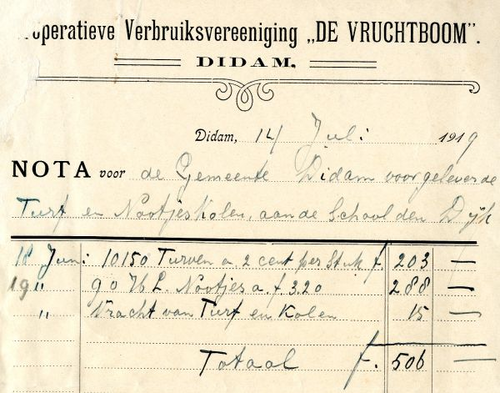 operatieve Verbruiksvereeniging „DE VRUCHTBOOM”.
DIDAM.
Didam, 14 Juli 1919
NOTA voor de Gemeente Didam voor geleverde
Turf en Nootjeskolen, aan de School den Dijk
18 Juni 10150 Turven a 2 cent per Stuk f. 203 —
19 " 90 H.L. Nootjes a f. 3.20 288 —
" Vracht van Turf en Kolen 15 —
Totaal f. 506 —